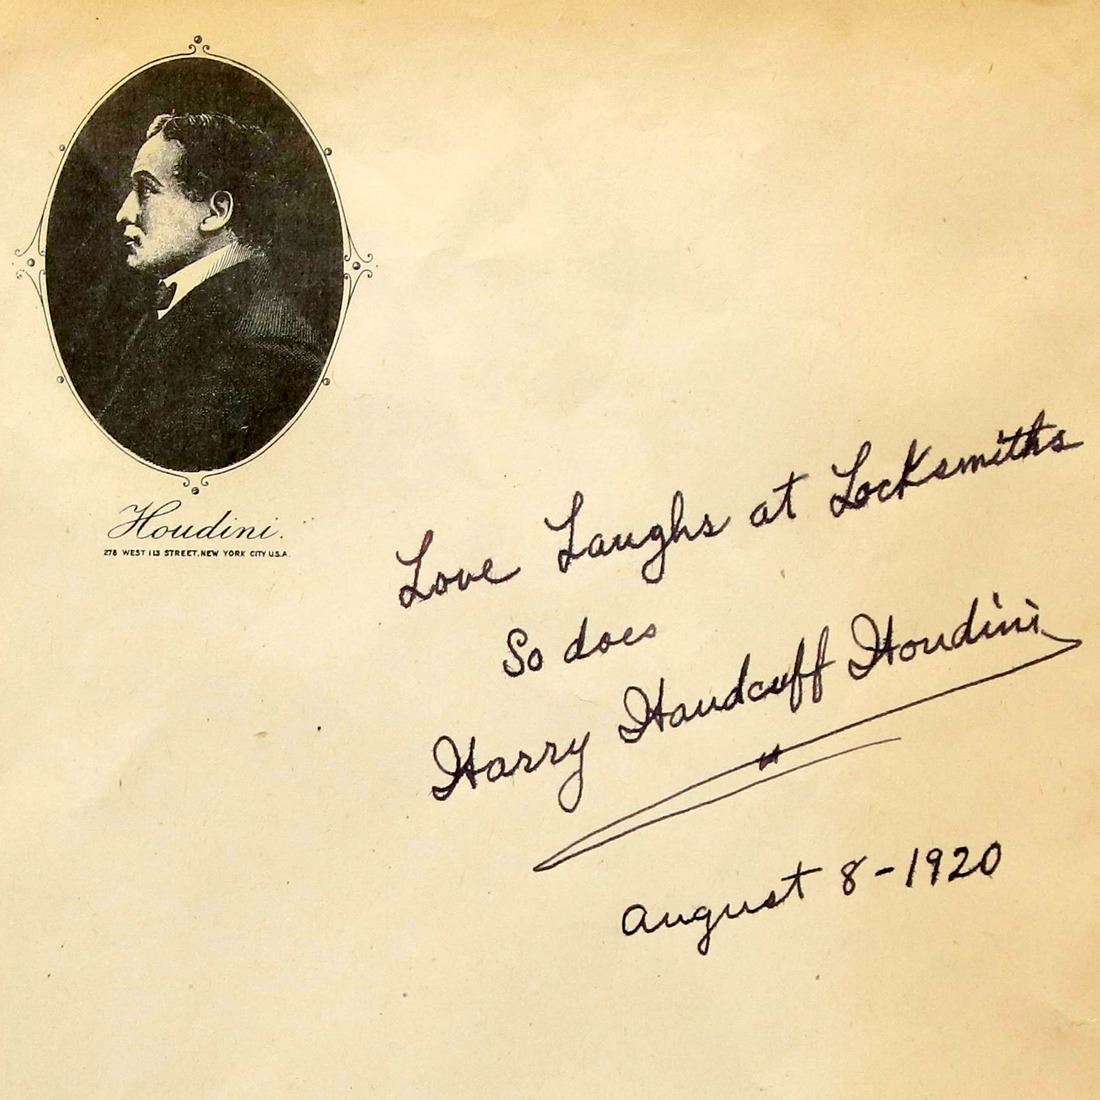 Houdini.
278 WEST 113 STREET, NEW YORK CITY U.S.A.
Love Laughs at Locksmiths
So does
Harry Handcuff Houdini
August 8-1920